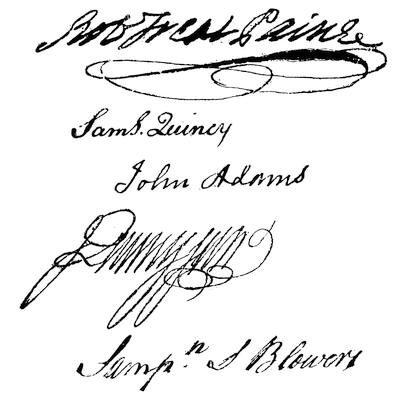 Rob Treat Paine
Saml. Quincy
John Adams
Sampn S Blowers